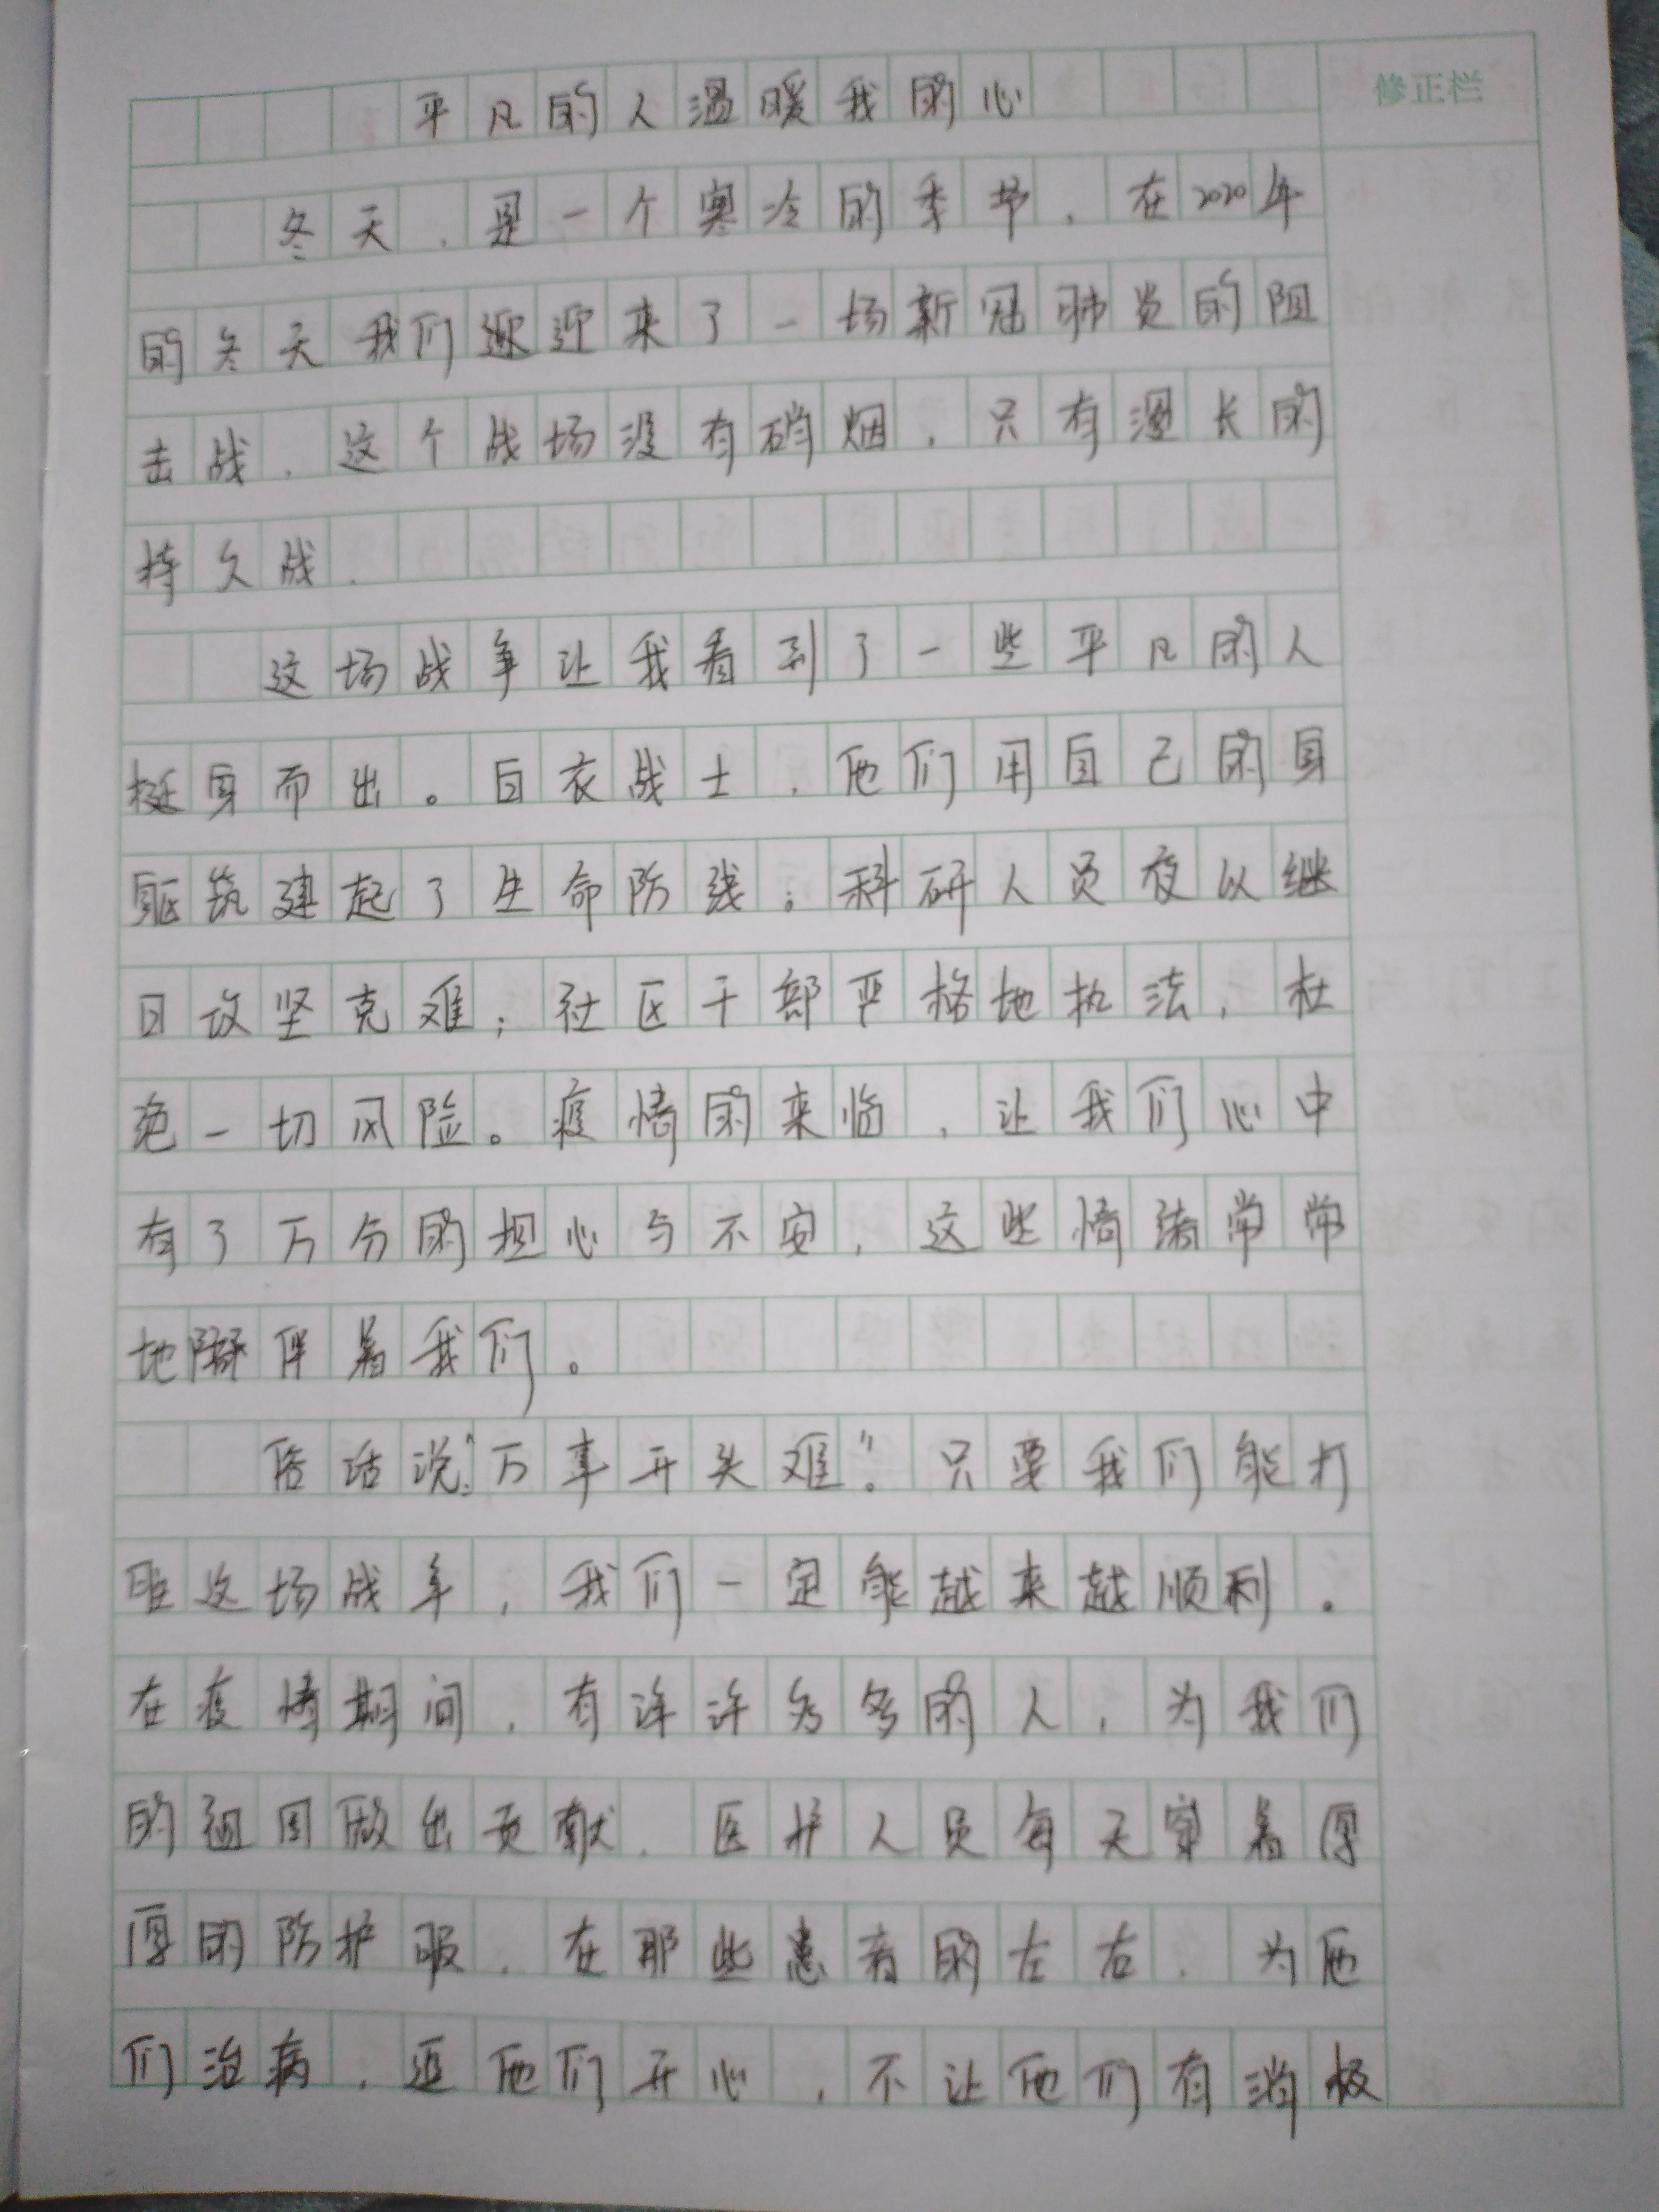 修正栏
平凡的人温暖我的心
冬天，是一个寒冷的季节，在2020年
的冬天我们迎来了一场新冠肺炎的阻
击战，这个战场没有硝烟，只有漫长的
持久战.
这场战争让我看到了一些平凡的人
挺身而出。白衣战士，他们用自己的身
躯筑建起了生命防线；科研人员夜以继
日攻坚克难；社区干部严格地执法，杜
绝一切风险。疫情的来临，让我们心中
有了万分的担心与不安，这些情绪常常
地伴着我们。
俗话说:“万事开头难”。只要我们能打
胜这场战争，我们一定能越来越顺利。
在疫情期间，有许许多多的人，为我们
的祖国做出贡献.医护人员每天穿着厚
厚的防护服，在那些患者的左右，为他
们治病，逗他们开心，不让他们有消极